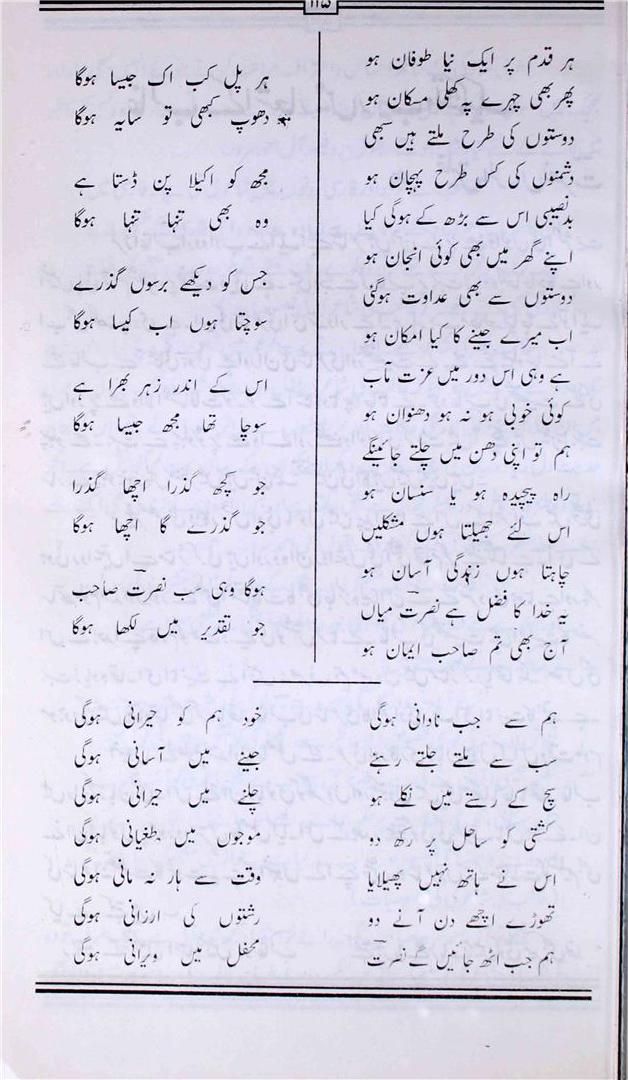 ۱۱۵
ہر قدم پر ایک نیا طوفان ہو
پھر بھی چہرے پہ کھلی مسکان ہو
دوستوں کی طرح ملتے ہیں سبھی
دشمنوں کی کس طرح پہچان ہو
بدنصیبی اس سے بڑھ کے ہوگی کیا
اپنے گھر میں بھی کوئی انجان ہو
دوستوں سے بھی عداوت ہوگئی
اب میرے جینے کا کیا امکان ہو
ہے وہی اس دور میں عزت مآب
کوئی خوبی ہو نہ ہو دھنوان ہو
ہم تو اپنی دھن میں چلتے جائینگے
راہ پیچیدہ ہو یا سنسان ہو
اس لئے جھیلتا ہوں مشکلیں
چاہتا ہوں زندگی آسان ہو
یہ خدا کا فضل ہے نصرت میاں
آج بھی تم صاحب ایمان ہو
ہر پل کب اک جیسا ہوگا
دھوپ کبھی تو سایہ ہوگا
مجھ کو اکیلا پن ڈستا ہے
وہ بھی تنہا تنہا ہوگا
جس کو دیکھے برسوں گذرے
سوچتا ہوں اب کیسا ہوگا
اس کے اندر زہر بھرا ہے
سوچا تھا مجھ جیسا ہوگا
جو کچھ گذرا اچھا گذرا
جو گذرے گا اچھا ہوگا
ہوگا وہی سب نصرت صاحب
جو تقدیر میں لکھا ہوگا
ہم سے جب نادانی ہوگی خود ہم کو حیرانی ہوگی
سب سے ملتے جلتے رہیئے جینے میں آسانی ہوگی
سچ کے رستے میں نکلے ہو چلنے میں حیرانی ہوگی
کشتی کو ساحل پر رکھ دو موجوں میں طغیانی ہوگی
اس نے ہاتھ نہیں پھیلایا وقت سے ہار نہ مانی ہوگی
تھوڑے اچھے دن آنے دو رشتوں کی ارزانی ہوگی
ہم جب اٹھ جائیں گے نصرت محفل میں ویرانی ہوگی